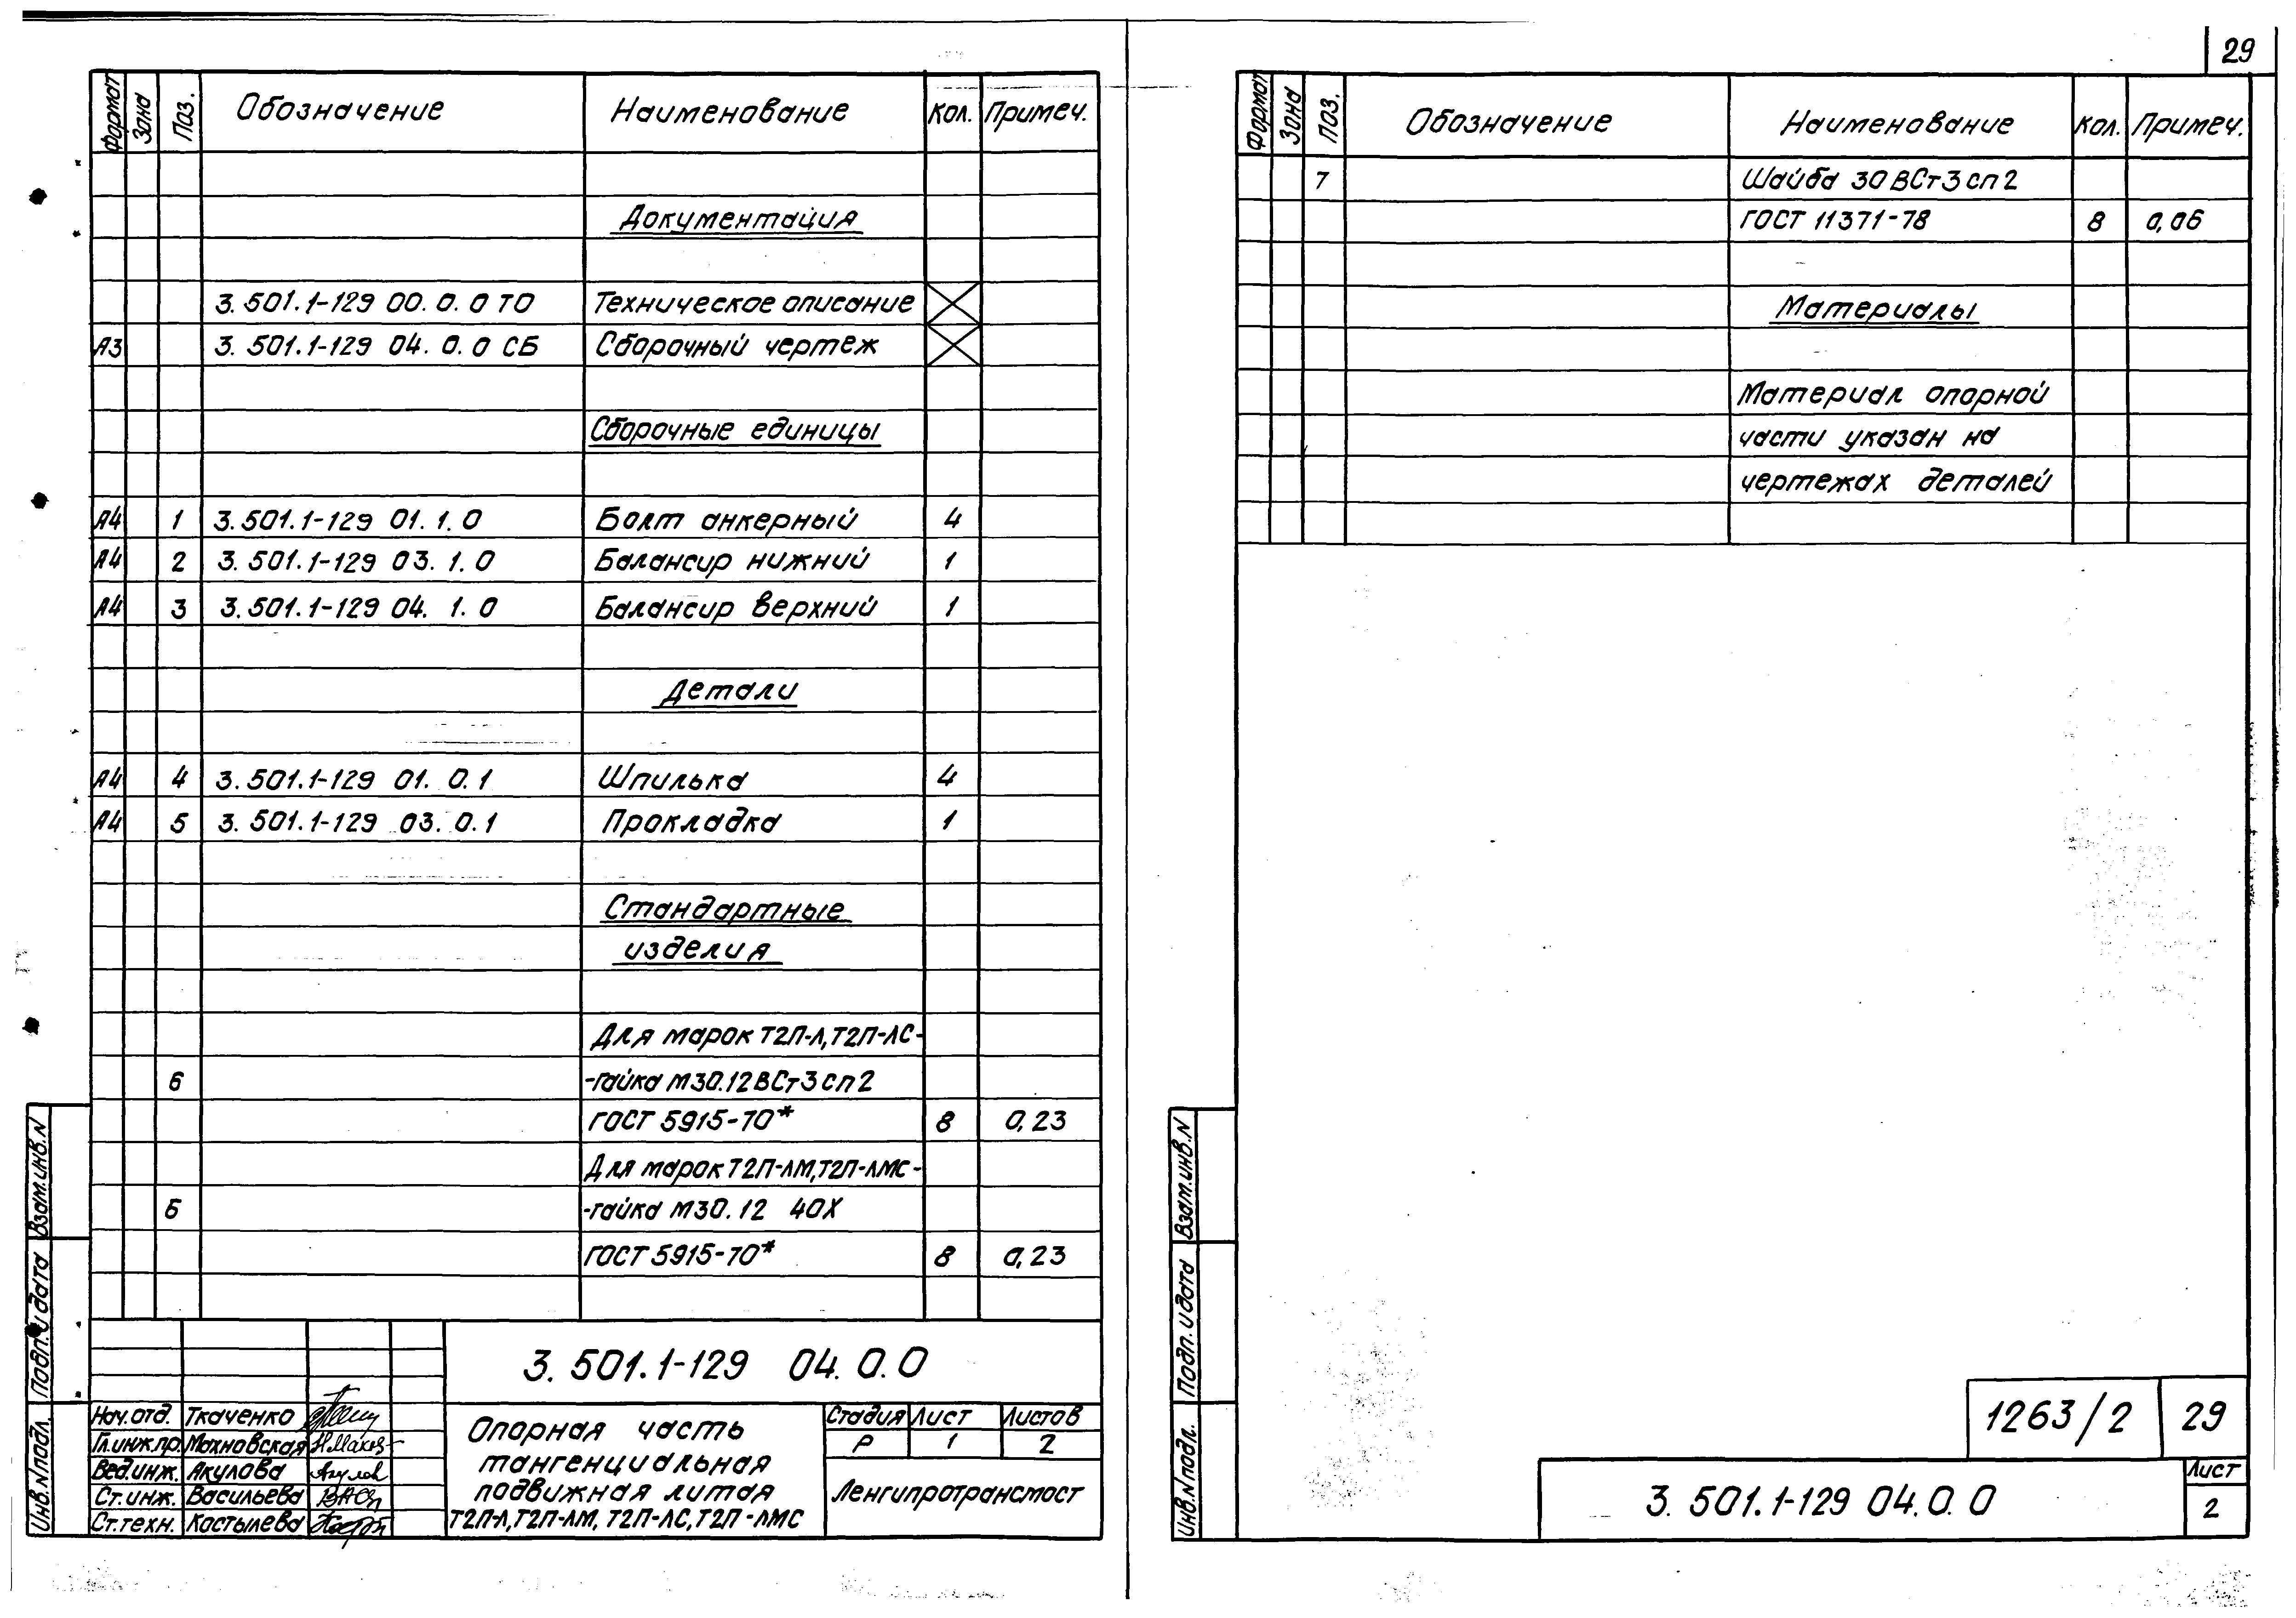 Формат Зона Поз. Обозначение Наименование Кол. Примеч.
Документация
3.501.1-129 00.0.0 ТО Техническое описание
А3 3.501.1-129 04.0.0 СБ Сборочный чертеж
Сборочные единицы
А4 1 3.501.1-129 01.1.0 Болт анкерный 4
А4 2 3.501.1-129 03.1.0 Балансир нижний 1
А4 3 3.501.1-129 04.1.0 Балансир верхний 1
Детали
А4 4 3.501.1-129 01.0.1 Шпилька 4
А4 5 3.501.1-129 03.0.1 Прокладка 1
Стандартные
изделия
Для марок Т2П-Л, Т2П-ЛС-
6 -гайка М30.12 ВСт3сп2
ГОСТ 5915-70* 8 0,23
Для марок Т2П-ЛМ, Т2П-ЛМС-
6 -гайка М30.12 40Х
ГОСТ 5915-70* 8 0,23
3.501.1-129 04.0.0
Нач.отд. Ткаченко
Гл.инж.пр. Махновская
Вед.инж. Акулова
Ст.инж. Васильева
Ст.техн. Костылева
Опорная часть
тангенциальная
подвижная литая
Т2П-Л, Т2П-ЛМ, Т2П-ЛС, Т2П-ЛМС
Стадия Лист Листов
Р 1 2
Ленгипротрансмост
Взам.инв.N
Подп. и дата
Инв.N подл.
29
Формат Зона Поз. Обозначение Наименование Кол. Примеч.
7 Шайба 30 ВСт3сп2
ГОСТ 11371-78 8 0,06
Материалы
Материал опорной
части указан на
чертежах деталей
Взам.инв.N
Подп. и дата
Инв.N подл.
1263/2 29
3.501.1-129 04.0.0
Лист
2